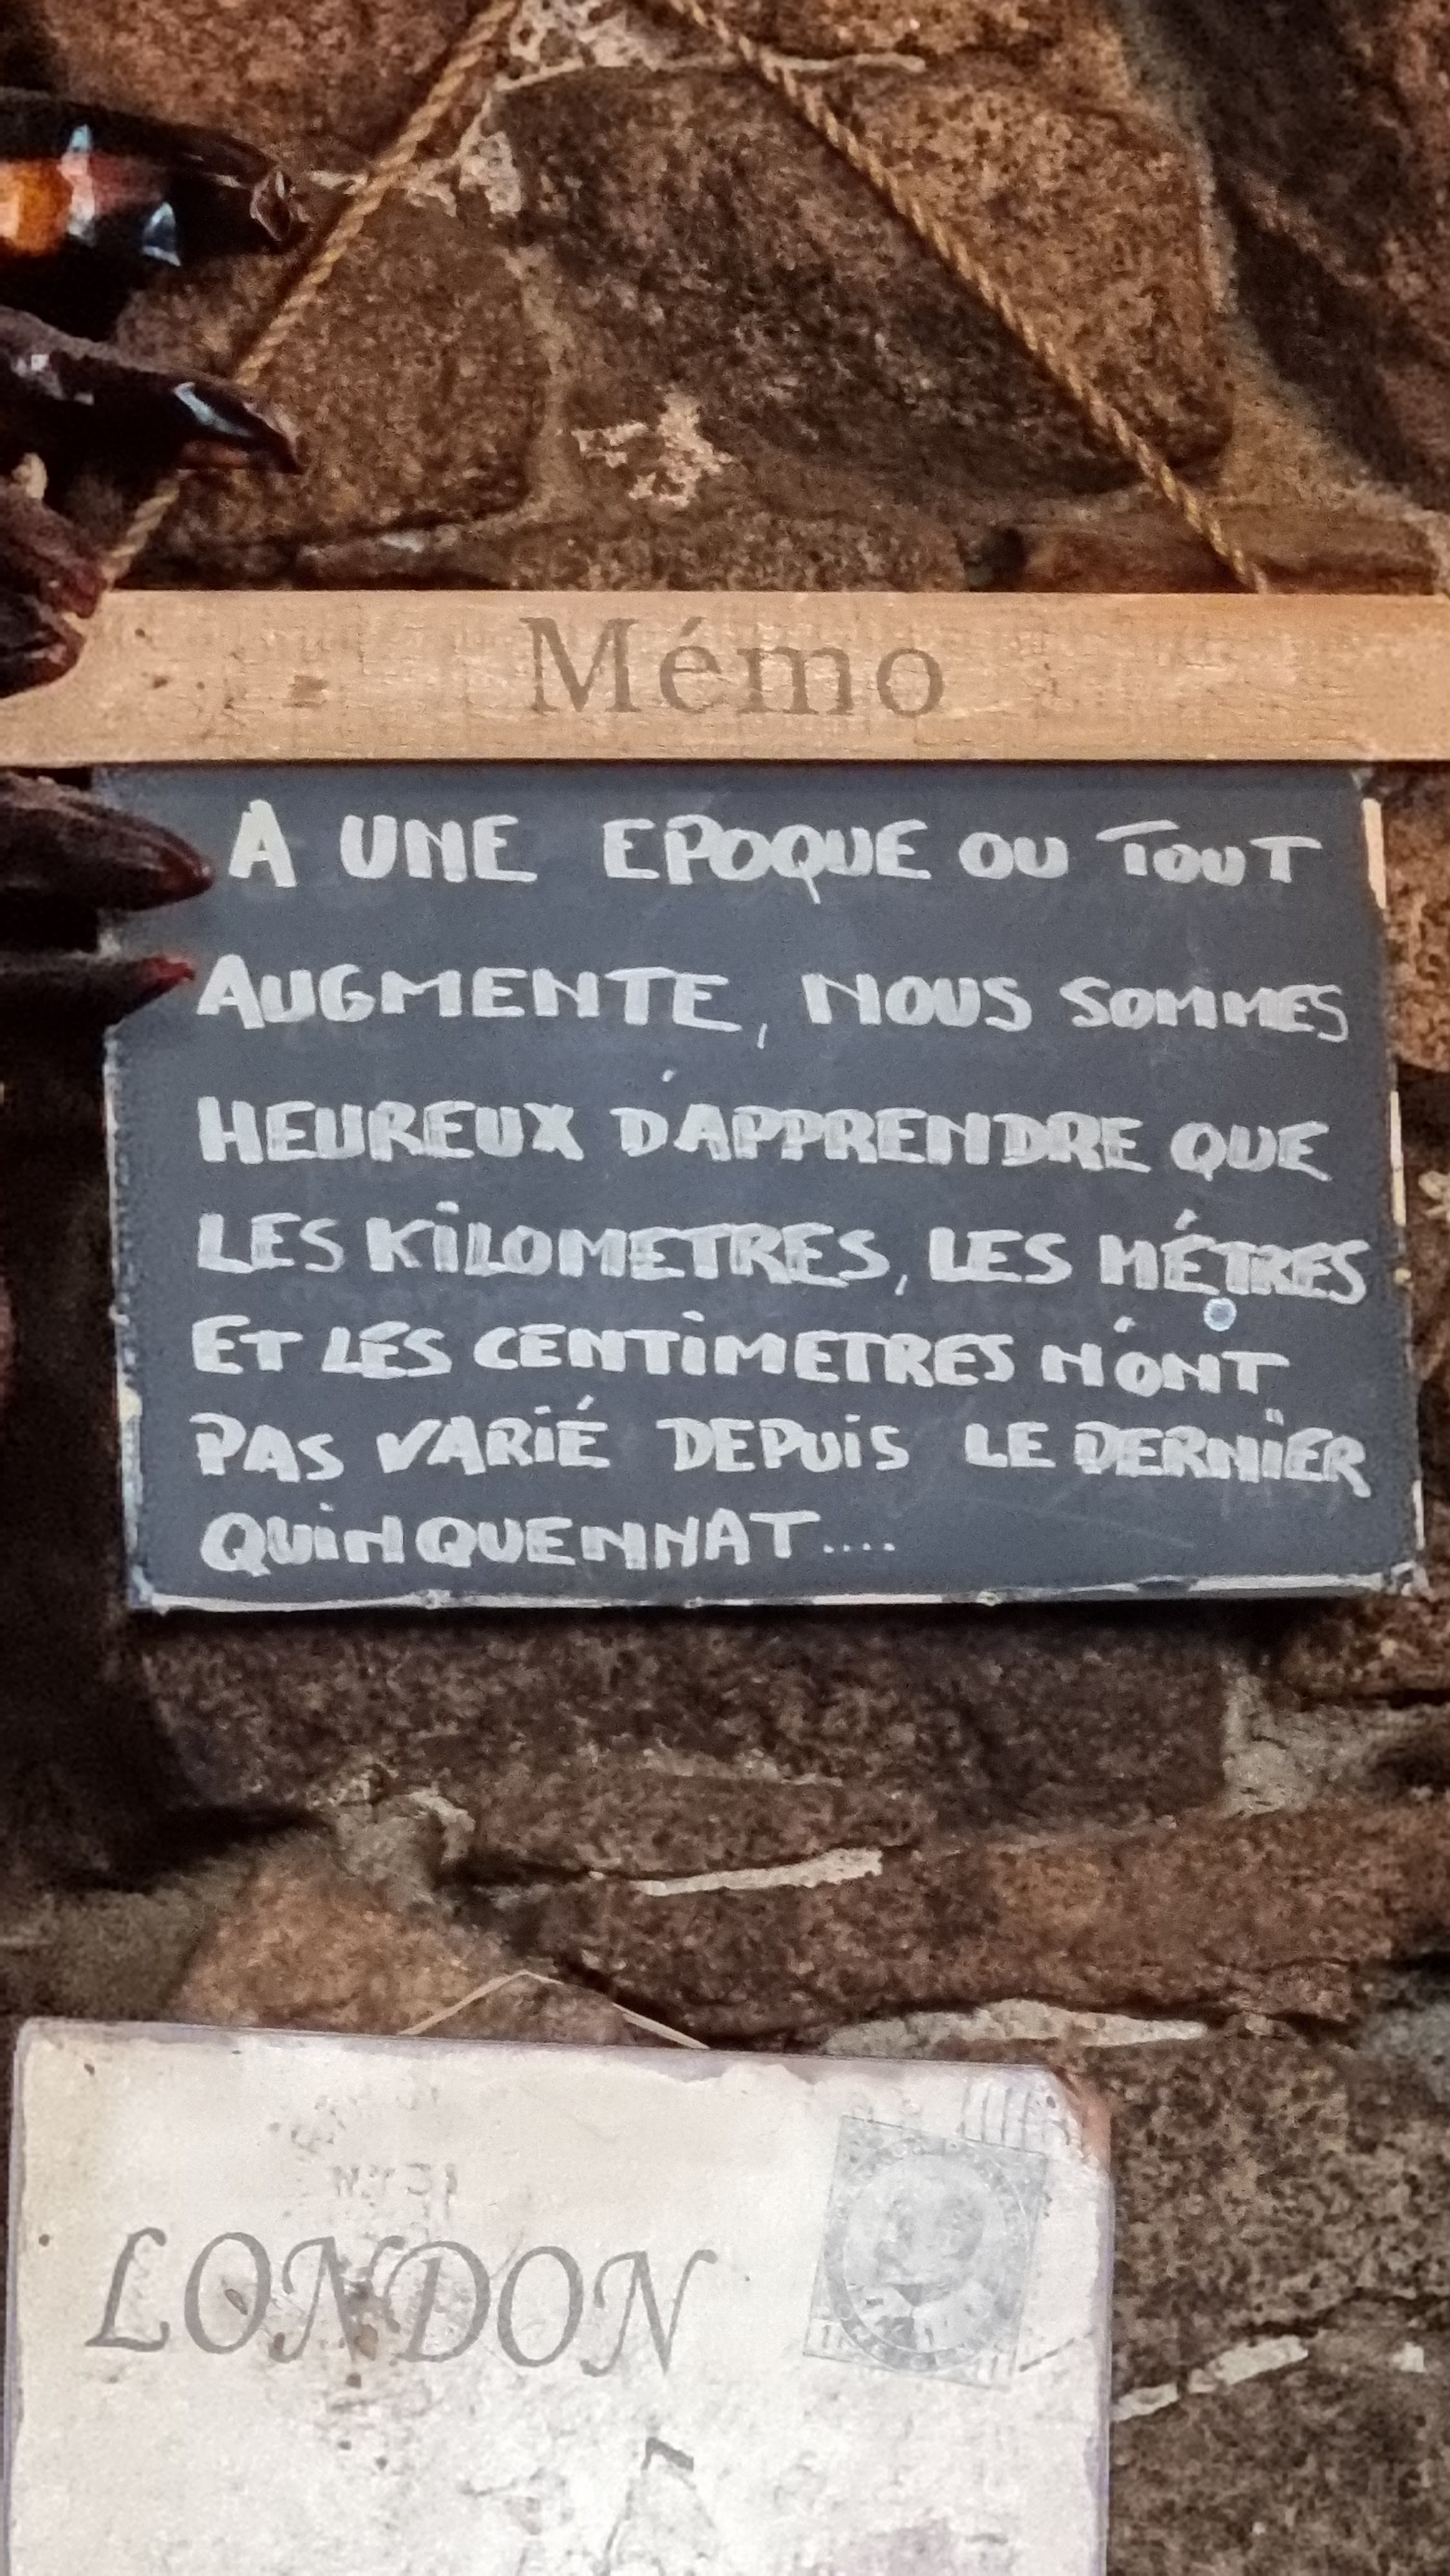 Mémo
A UNE EPOQUE OU TOUT
AUGMENTE, NOUS SOMMES
HEUREUX D'APPRENDRE QUE
LES KILOMETRES, LES MÉTRES
ET LES CENTIMETRES N'ONT
PAS VARIÉ DEPUIS LE DERNIER
QUINQUENNAT....
LONDON